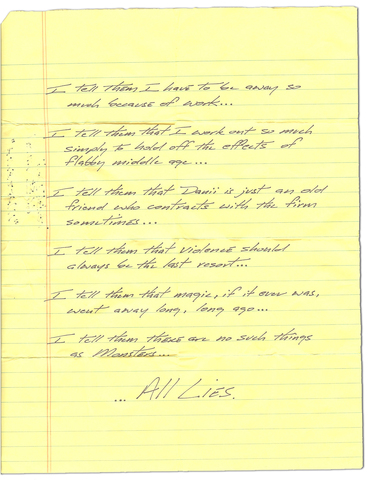 I tell them I have to be away so
much because of work...
I tell them that I work out so much
simply to hold off the effects of
flabby middle age...
I tell them that Danii is just an old
friend who contracts with the firm
sometimes...
I tell them that violence should
always be the last resort...
I tell them that magic, if it ever was,
went away long, long ago...
I tell them there are no such things
as Monsters...
... All Lies.